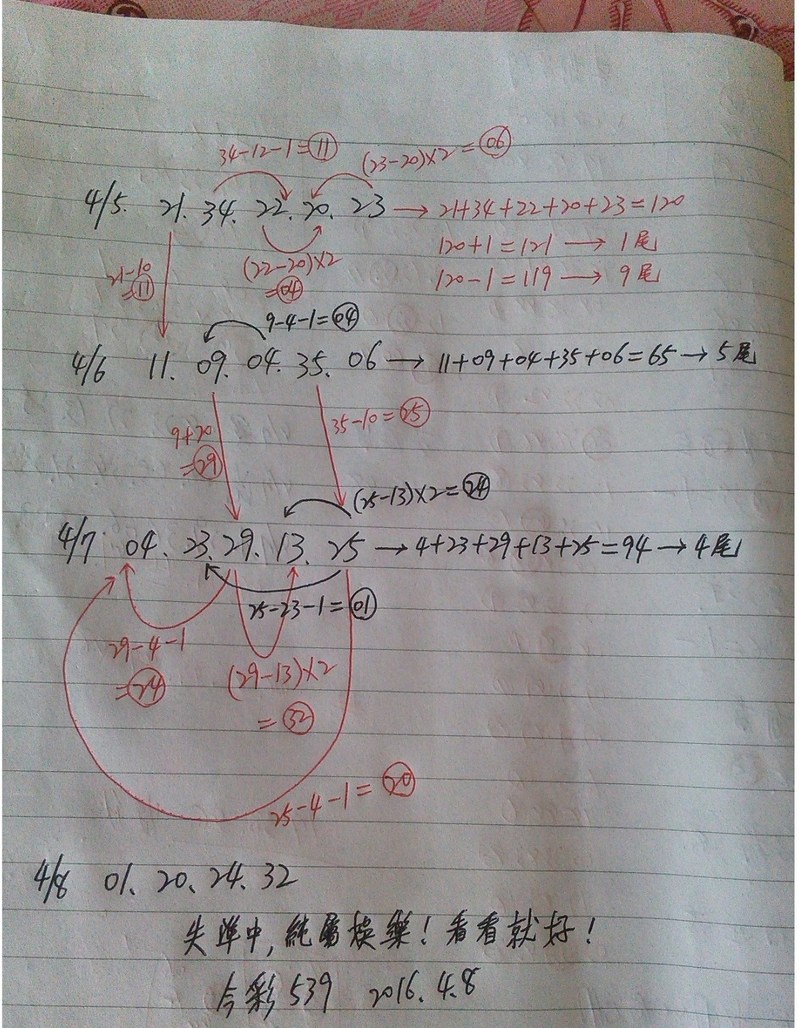 34-12-1=11
(23-20)×2=06
4/5. 21. 34. 22. 20. 23 → 21+34+22+20+23=120
120+1=121 → 1尾
21-10
=11
(22-20)×2
=04
120-1=119 → 9尾
9-4-1=04
4/6 11. 09. 04. 35. 06 → 11+09+04+35+06=65 → 5尾
9+20
=29
35-10=25
(25-13)×2=24
4/7 04. 23. 29. 13. 25 → 4+23+29+13+25=94 → 4尾
25-23-1=01
29-4-1
=24
(29-13)×2
=32
25-4-1=20
4/8 01、20、24、32
失準中,純屬娛樂!看看就好!
今彩539 2016.4.8